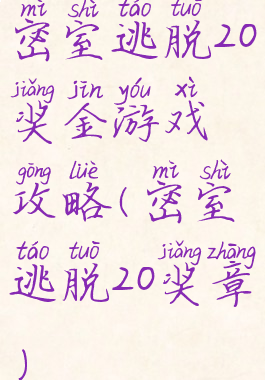 mì shì táo tuō
密室逃脱20
jiǎng jīn yóu xì
奖金游戏
gōng lüè mì shì
攻略(密室
táo tuō jiǎng zhāng
逃脱20奖章
)